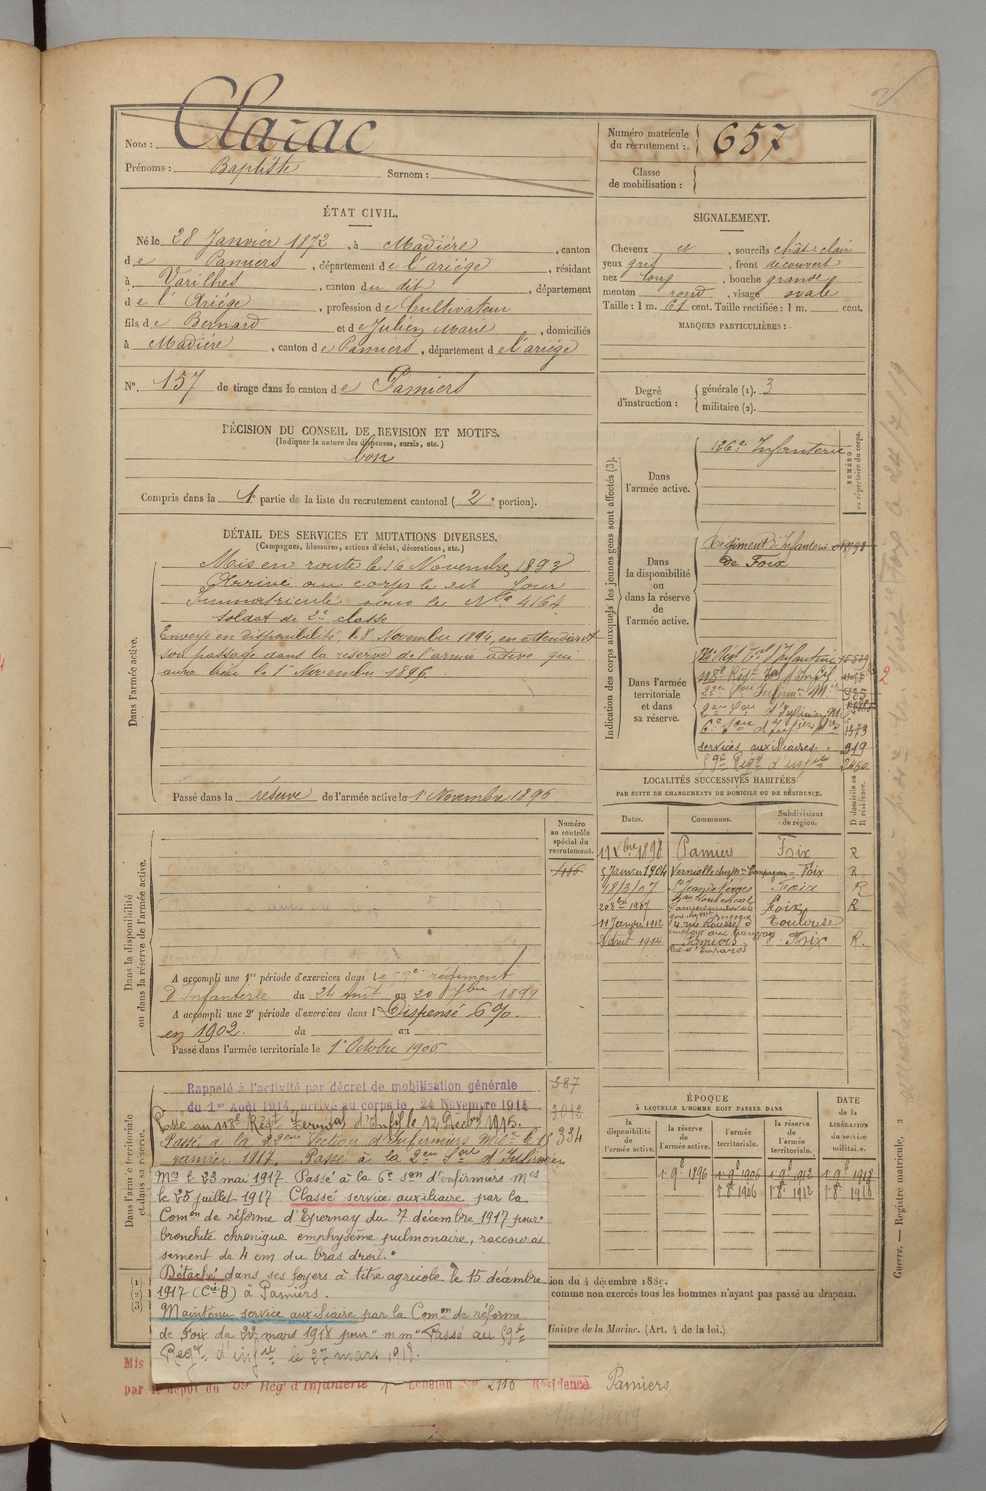 Nom : Clarac
Prénoms : Baptiste Surnom :
Numéro matricule du recrutement : 657
Classe de mobilisation :
ÉTAT CIVIL.
Né le 28 Janvier 1872, à Madière, canton
de Pamiers, département de l'ariége, résidant
à Varilhes, canton du dit, département
de l'Ariége, profession de Cultivateur
fils de Bernard et de Julien Marie, domiciliés
à Madiére, canton de Pamiers, département de l'ariége
N° 157 de tirage dans le canton de Pamiers
SIGNALEMENT.
Cheveux et, sourcils chât-clair
yeux gris, front découvert
nez long, bouche grande
menton rond, visage ovale
Taille : 1 m. 61 cent. Taille rectifiée : 1 m. cent.
MARQUES PARTICULIÈRES :
Degré d'instruction : générale (1). 3
militaire (2).
DÉCISION DU CONSEIL DE REVISION ET MOTIFS.
(Indiquer la nature des dispenses, sursis, etc.)
bon
Compris dans la 1e partie de la liste du recrutement cantonal (2e portion).
DÉTAIL DES SERVICES ET MUTATIONS DIVERSES.
(Campagnes, blessures, actions d'éclat, décorations, etc.)
Dans l'armée active.
Mis en route le 16 Novembre 1893
Arrivé au corps le dit jour
Immatriculé sous le No 4164
Soldat de 2e classe
Envoyé en disponibilité le 8 Novembre 1894, en attendant
son passage dans la réserve de l'armée active qui
aura lieu le 1er Novembre 1896.
Passé dans la réserve de l'armée active le 1er Novembre 1896
Indication des corps auxquels les jeunes gens sont affectés (3).
NUMÉRO au répertoire du corps.
Dans l'armée active.
126e Infanterie
Dans la disponibilité ou dans la réserve de l'armée active.
Régiment d'Infanterie
de Foix
Dans l'armée territoriale et dans sa réserve.
118e Régt Tal d'Infie
services auxiliaires. 919
59e Régt d'infie 2460
2
LOCALITÉS SUCCESSIVES HABITÉES
PAR SUITE DE CHANGEMENTS DE DOMICILE OU DE RÉSIDENCE.
Dates. Communes. Subdivisions de région. D domicile ou R résidence.
11 Xbre 1898 Pamiers Foix R
5 Janvier 1904 Verniolle Foix R
18/3/07 St Jean de Verges Foix R
20 8bre 1907 Foix R
11 Janvier 1912 Toulouse
2 Août 1914 Pamiers Foix R.
Numéro au contrôle spécial du recrutement.
Dans la disponibilité ou dans la réserve de l'armée active.
A accompli une 1re période d'exercices dans le 59e régiment
d'Infanterie du 24 Août au 20 7bre 1899
A accompli une 2e période d'exercices dans l Dispensé 6%.
en 1902. du au
Passé dans l'armée territoriale le 1er Octobre 1906
Dans l'armée territoriale et dans sa réserve.
Rappelé à l'activité par décret de mobilisation générale
du 1er Août 1914, arrivé au corps le 24 Novembre 1914
Passé au 118e Régt Territal d'Infie le 13 Decbre 1915.
Passé à la 22eme Section d'Infirmiers Mres le 18
janvier 1917. Passé à la 2eme Son d'Infirmiers
Mres le 23 mai 1917. Passé à la 6e Son d'infirmiers Mres
le 25 juillet 1917 Classé service auxiliaire par la
Comon de réforme d'Epernay du 7 décembre 1917 pour "
bronchite chronique emphysème pulmonaire, raccourcis
sement de 4 cm du bras droit. "
Détaché dans ses foyers à titre agricole le 15 décembre
1917 (Cie B) à Pamiers.
Maintenu service auxiliaire par la Comon de réforme
de Foix du 22 mars 1918 pour " m m " Passé au 59e
Regt d'infie le 27 mars 1918.
387
3012
334
ÉPOQUE
À LAQUELLE L'HOMME DOIT PASSER DANS
la disponibilité de l'armée active. la réserve de l'armée active. l'armée territoriale. la réserve de l'armée territoriale. DATE de la LIBÉRATION du service militaire.
1er 9bre 1896 1er 9bre 1906 1er 9bre 1912 1er 9bre 1918
1er 8bre 1906 1er 8bre 1912 1er 8bre 1918
(1)
(2)
(3)
ion du 4 décembre 1889.
comme non exercés tous les hommes n'ayant pas passé au drapeau.
Ministre de la Marine. (Art. 4 de la loi.)
Mis
par le dépôt du 59e Rég d'Infanterie 1er Echelon No 2116 Résidence Pamiers
14/2/1919
Guerre. — Registre matricule. 2